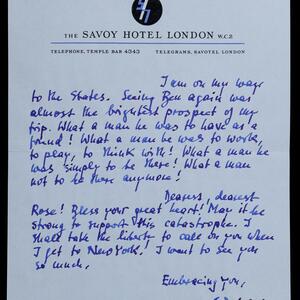 THE SAVOY HOTEL LONDON W.C.2
TELEPHONE, TEMPLE BAR 4343 TELEGRAMS, SAVOTEL LONDON
I am on my way
to the States. Seeing Ben again was
almost the brightest prospect of my
trip. What a man he was to have as a
friend! What a man he was to work,
to play, to think with! What a man he
was simply to be there! What a man
not to be there anymore!
Dearest, dearest
Rose! Bless your great heart! May it be
strong to support this catastrophe. I
shall take the liberty to call on you when
I get to New York. I want to see you
so much.
Embracing you,